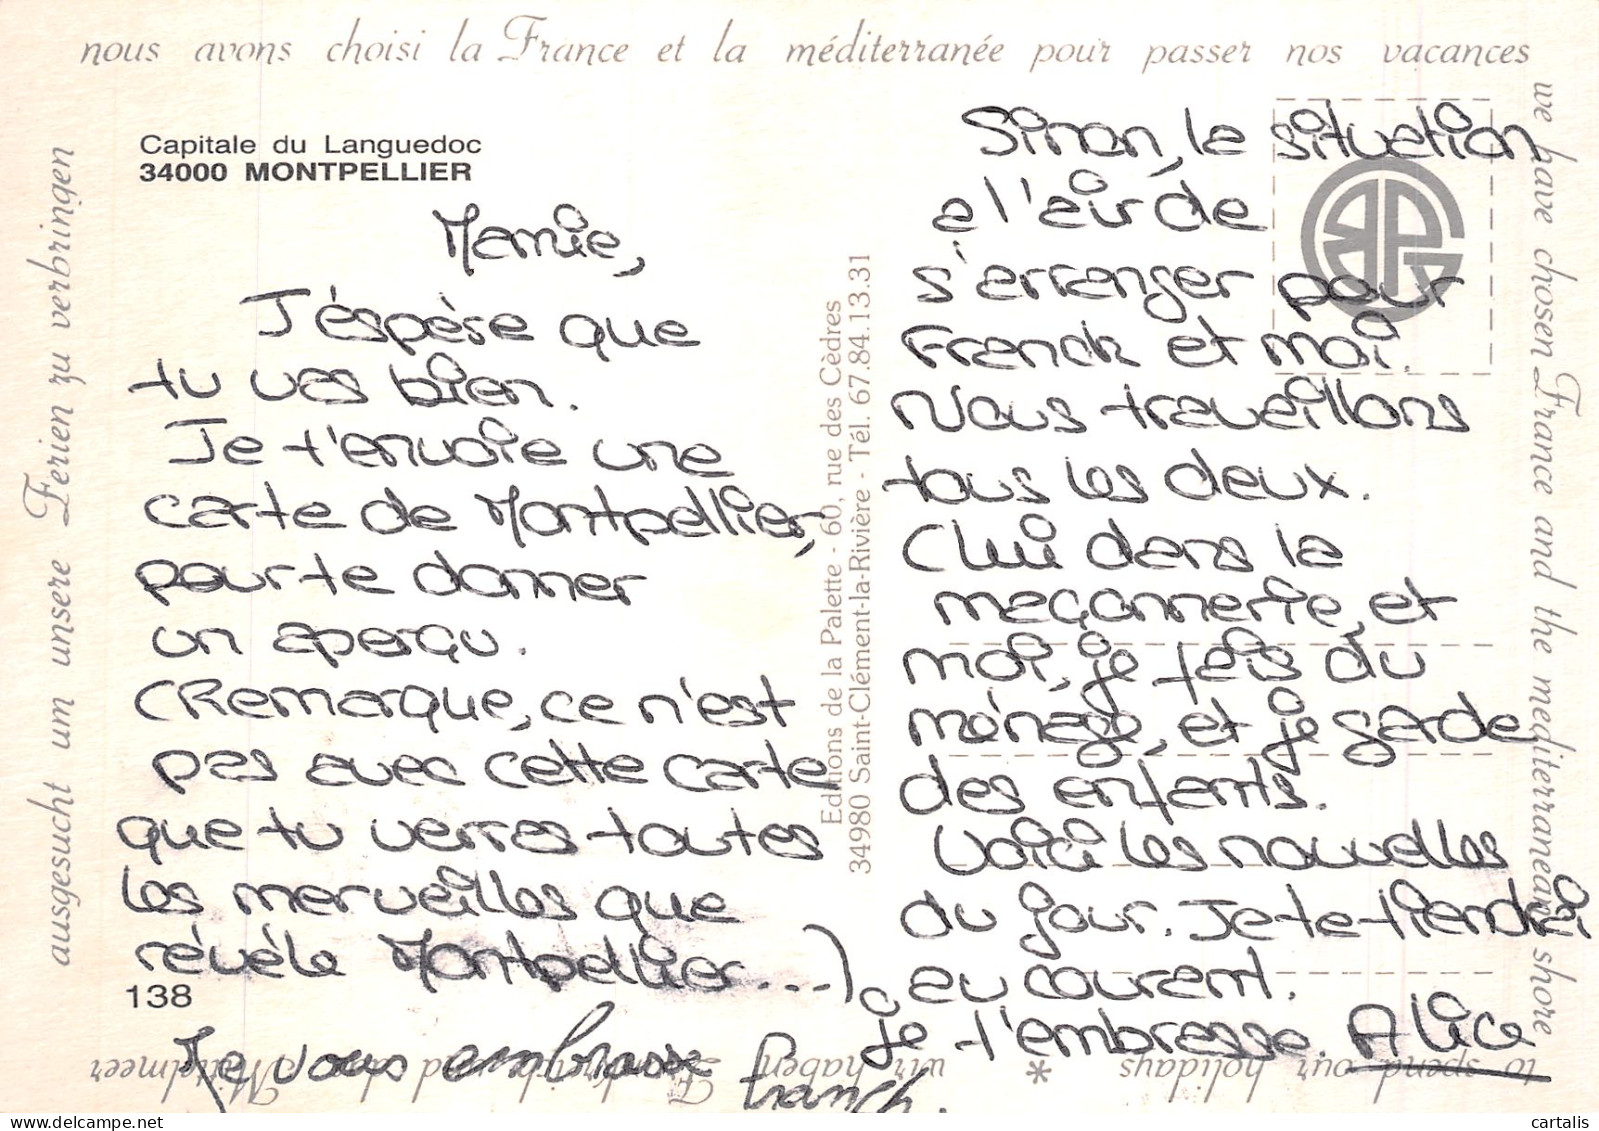 nous avons choisi la France et la méditerranée pour passer nos vacances
we have chosen France and the mediterranean shore
to spend our holidays
*
wir haben Frankreich und das Mittelmeer
ausgesucht um unsere Ferien zu verbringen
Capitale du Languedoc
34000 MONTPELLIER
Mamie,
J'éspère que
tu vas bien.
Je t'envoie une
carte de Montpellier,
pour te donner
un aperçu.
(Remarque, ce n'est
pas avec cette carte
que tu verras toutes
les merveilles que
révèle Montpellier...).
138
Je vous embrasse
Franck.
Editions de la Palette - 60, rue des Cèdres
34980 Saint-Clément-la-Rivière - Tél. 67.84.13.31
Sinon, la situation
a l'air de
s'arranger pour
Franck et moi.
Nous travaillons
tous les deux.
(lui dans la
maçonnerie, et
moi, je fais du
ménage, et je garde
des enfants.
Voici les nouvelles
du jour. Je te tiendrai
au courant.
je t'embrasse. Alice
cartalis